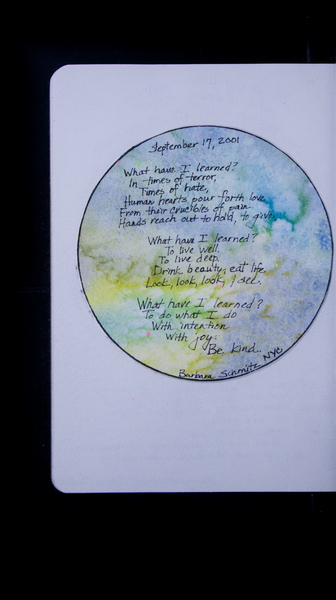 September 17, 2001
What have I learned?
In times of terror,
Times of hate,
Human hearts pour forth love
From their crucibles of pain.
Hands reach out to hold, to give.
What have I learned?
To live well.
To live deep.
Drink beauty, eat life.
Look, look, look, & see.
What have I learned?
To do what I do
With intention
With joy.
Be kind..
Barbara Schmitz NYC